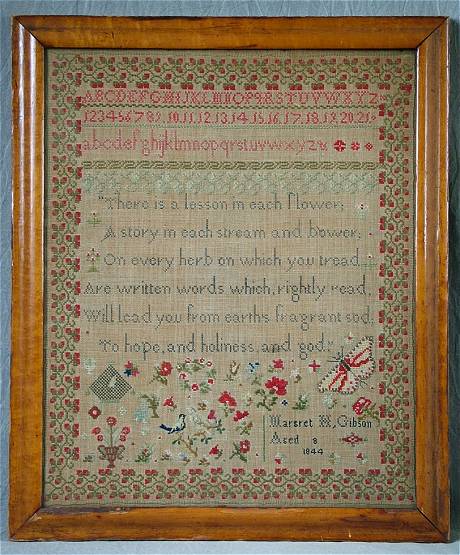 ABCDEFGHIJKLMNOPQRSTUVWXYZ
123456789.10.11.12.13.14.15.16.17.18.19.20.21.
abcdefghijklmnopqrstuvwxyz&
"There is a lesson in each flower;
A story in each stream and bower;
On every herb on which you tread
Are written words which, rightly read,
Will lead you from earth's fragrant sod,
To hope, and holiness, and god."
Margret Gibson
Aged 8
1844